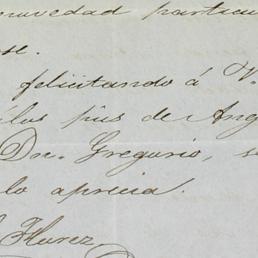 novedad particu
se.
felicitando á V.
los piés de Ang
Dn. Gregorio, s
lo aprecia.
Florez